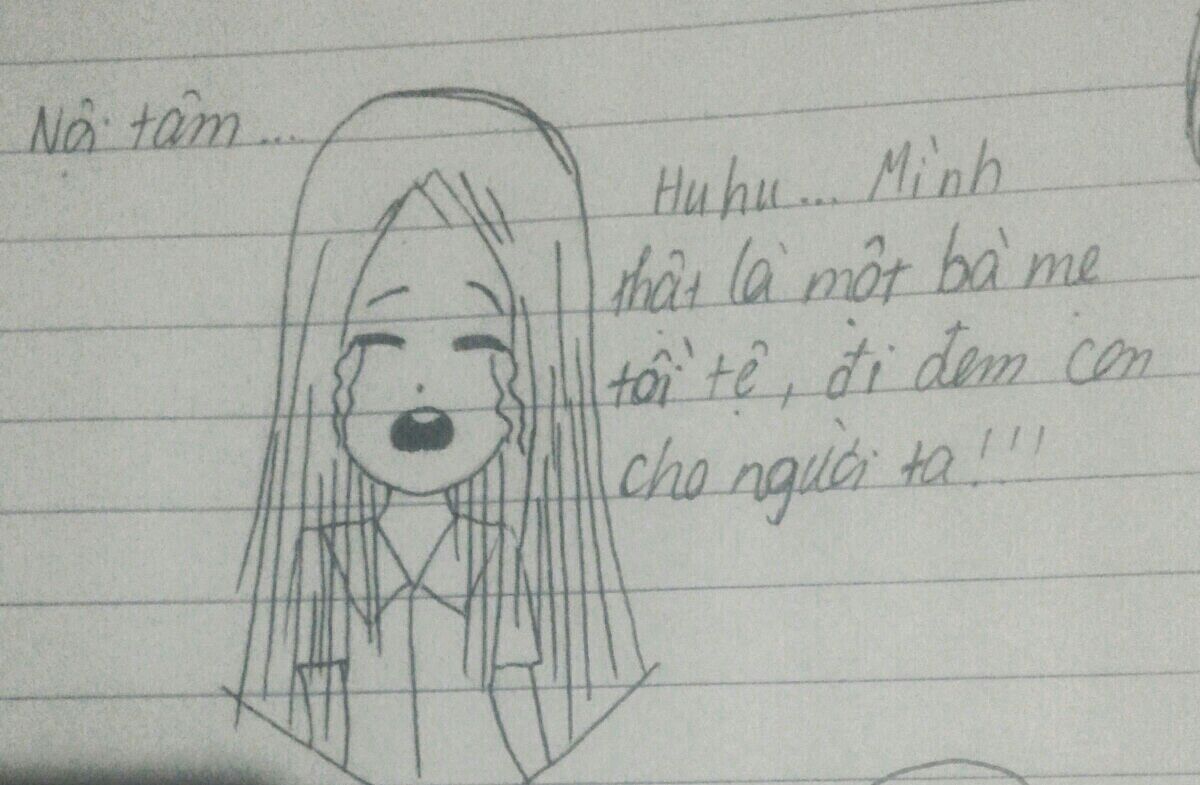 Nội tâm...
Huhu... Mình
thật là một bà mẹ
tồi tệ, đi đem con
cho người ta!!!